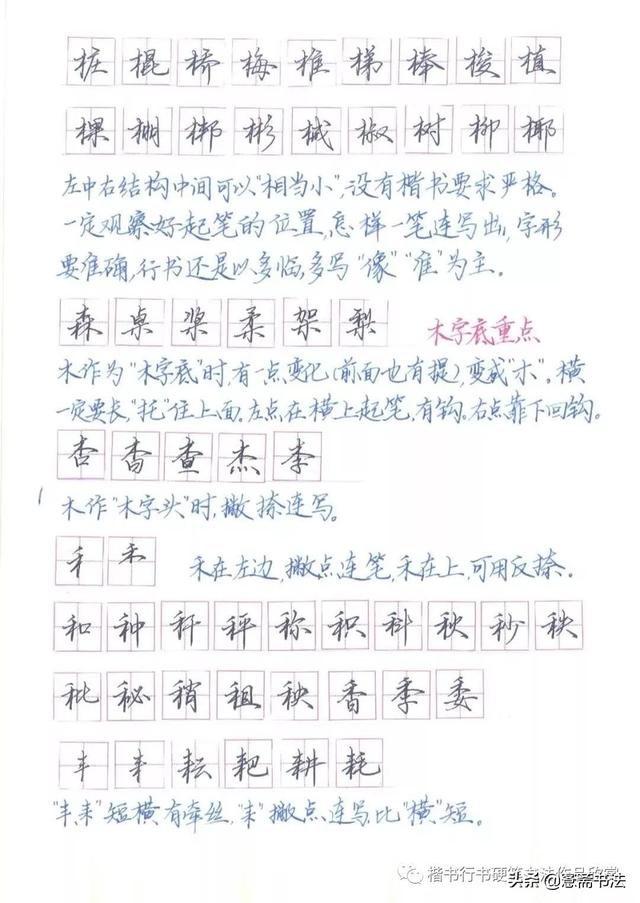 桩棍桥梅椎梯棒梭植
棵棚梆彬械椒树柳椰
左中右结构中间可以"相当小",没有楷书要求严格。
一定观察好起笔的位置,怎样一笔连写出,字形
要准确,行书还是以多临,多写"像""准"为主。
森桌桨柔架梨 木字底重点
木作为"木字底"时,有一点变化(前面也有提),变成"朩"。横
一定要长,"托"住上面。左点在横上起笔,有钩。右点靠下回钩。
杏杳查杰李
木作"木字头"时,撇捺连写。
禾禾 禾在左边,撇点连笔,禾在上,可用反捺。
和种秆秤称积科秋秒秩
秕秘稍租秧香季委
丰耒耘耙耕耗
"丰、耒"短横有牵丝,"耒"撇点连写,比"横"短。
楷书行书硬笔书法作品欣赏
头条@慧斋书法